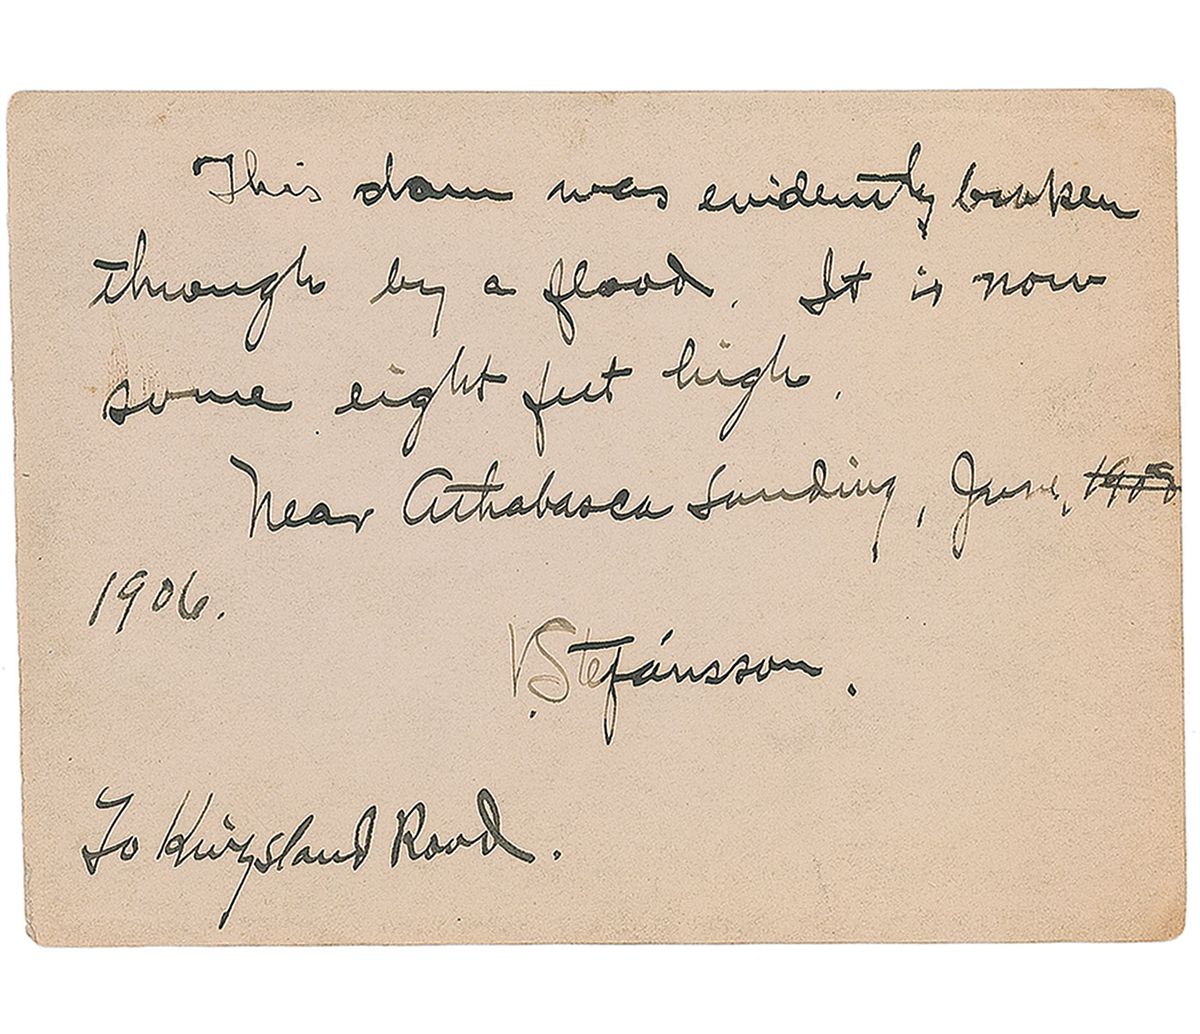 This dam was evidently broken
through by a flood. It is now
some eight feet high.
Near Athabasca Landing, June,
1906.
V. Stefánsson.
To Kingsland Rood.